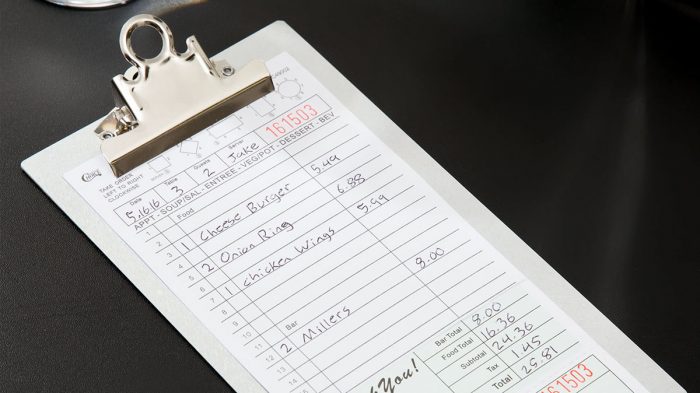 TAKE ORDER
LEFT TO RIGHT
CLOCKWISE
Date Table Guests Server
5/16/16 3 2 Jake 161503
APPT - SOUP/SAL - ENTREE - VEG/POT - DESSERT - BEV
1 Food
2
3 1 Cheese Burger 5.49
4
5 2 Onion Ring 6.88
6
7 1 chicken Wings 5.99
8
9
10
11 Bar
12 2 Millers 8.00
13
14
You!
Bar Total 8.00
Food Total 16.36
Subtotal 24.36
Tax 1.45
Total 25.81
161503